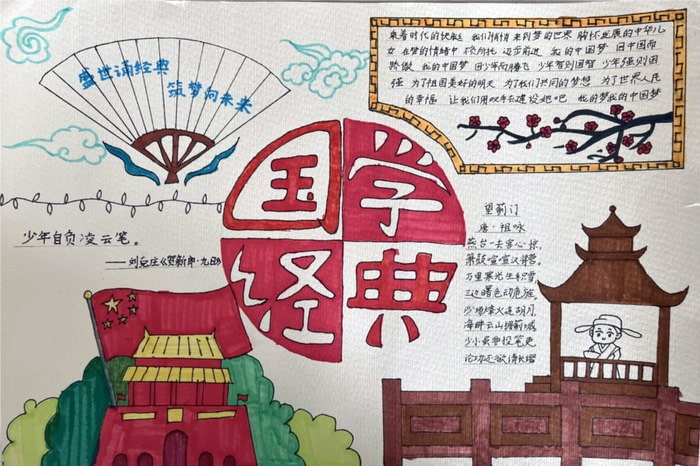 盛世诵经典
筑梦向未来
乘着时代的快艇 我们倾情来到梦的世界 胸怀 的中华儿
女 在梦的情绪中 迈步前进 我的中国梦 因中国而
骄傲 我的中国梦 因少年而腾飞 少年智则国智 少年强则国
强 为了祖国美好的明天 为了我们共同的梦想 为了世界人民
的幸福 让我们用双手去建设她吧 我的梦我的中国梦
国学
经典
少年自负凌云笔。
——刘克庄《贺新郎·九日》
望蓟门
唐·祖咏
燕台一去客心惊,
箫鼓喧喧汉将营。
万里寒光生积雪
三边曙色动危旌。
沙场烽火连胡月
海畔云山拥蓟城
少小虽非投笔吏
论功还欲请长缨